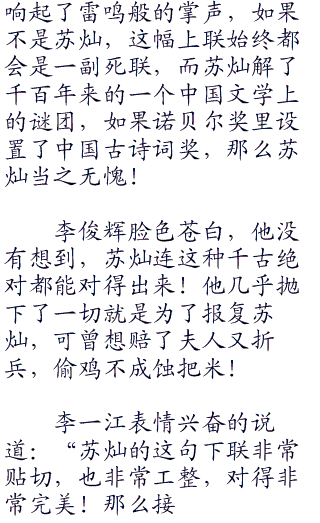 响起了雷鸣般的掌声，如果
不是苏灿，这幅上联始终都
会是一副死联，而苏灿解了
千百年来的一个中国文学上
的谜团，如果诺贝尔奖里设
置了中国古诗词奖，那么苏
灿当之无愧！
李俊辉脸色苍白，他没
有想到，苏灿连这种千古绝
对都能对得出来！他几乎抛
下了一切就是为了报复苏
灿，可曾想赔了夫人又折
兵，偷鸡不成蚀把米！
李一江表情兴奋的说
道：“苏灿的这句下联非常
贴切，也非常工整，对得非
常完美！那么接